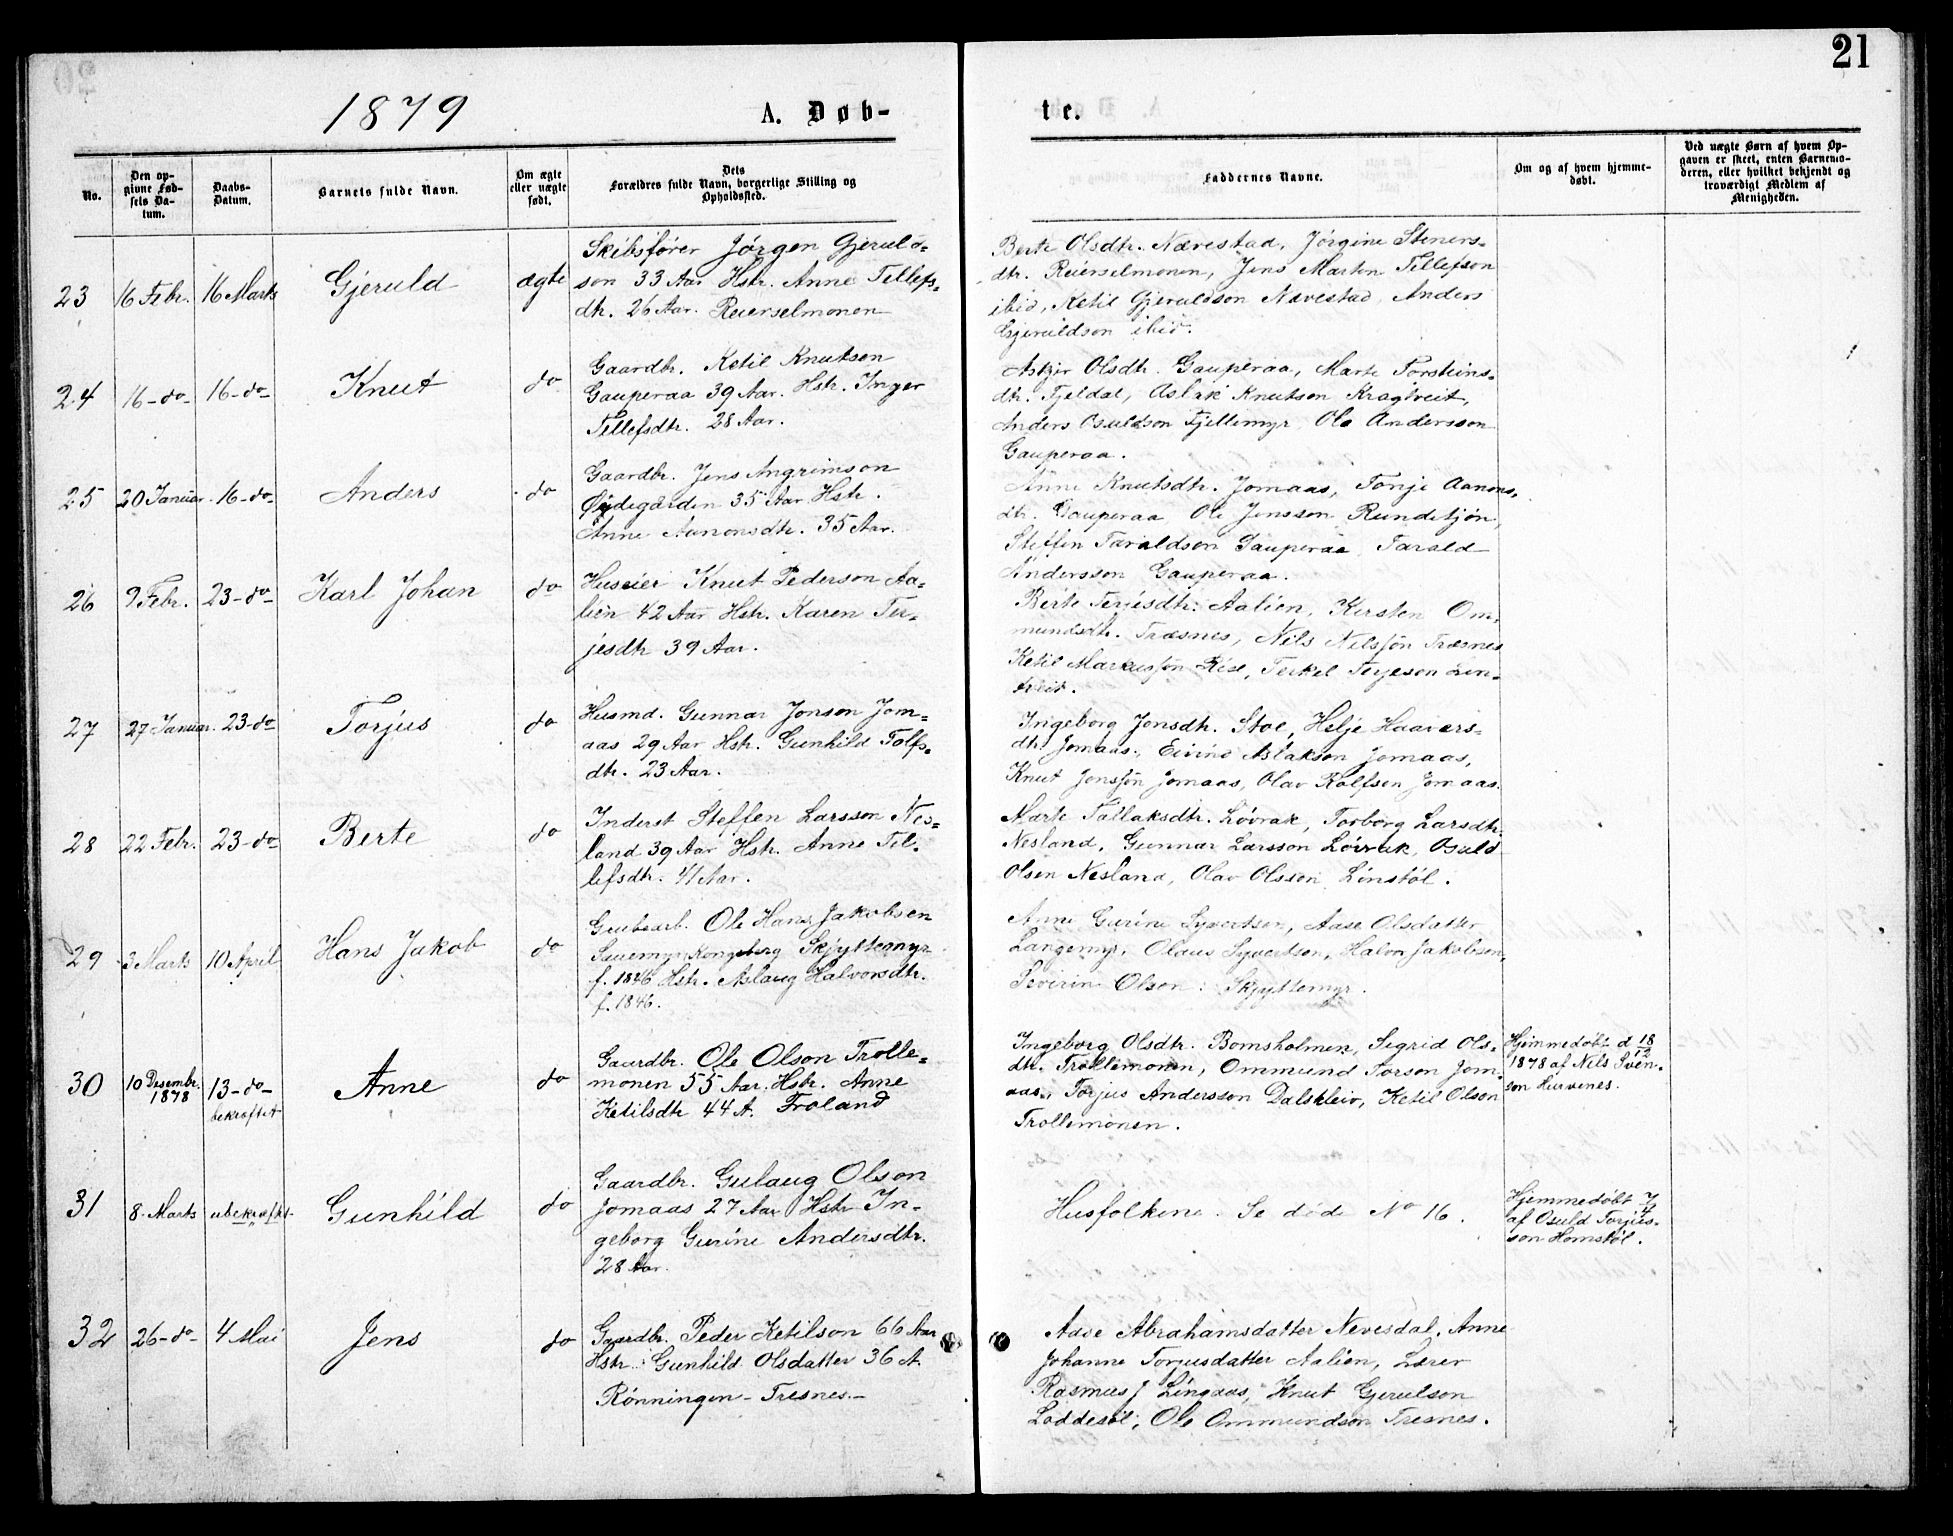 21
1879
A. Døb-
te.
No.
Den op-
givne Fød-
sels Da-
tum.
Daabs-
Datum.
Barnets fulde Navn.
Om ægte
eller uægte
født.
Dets
Forældres fulde Navn, borgerlige Stilling og
Opholdssted.
Faddernes Navne.
Om og af hvem hjemme-
døbt.
Ved uægte Børn af hvem Op-
gaven er skeet, enten Barnemo-
deren, eller hvilket bekjendt og
troværdigt Medlem af
Menigheden.
23
16 Febr.
16 Marts
Gjeruld
ægte
Skibsfører Jörgen Gjeruld-
son 33 Aar Hstr. Anne Tellefs-
dtr. 26 Aar. Reierselmonen
Berte Olsdtr. Nævestad, Jörgine Steners-
dtr. Reierselmonen, Jens Marton Tellefson
ibid, Ketil Gjeruldson Nævestad, Anders
Gjeruldson ibid.
24
16-do-
16-do-
Knut
do
Gaardbr. Ketil Knutsen
Gauperaa 39 Aar. Hstr. Inger
Tellefsdtr. 28 Aar.
Askjer Olsdtr. Gauperaa, Marte Torsteins-
dtr. Fjeldal, Aslak Knutson Kragtveit,
Anders Osuldson Fjellemyr, Ole Andersson
Gauperaa.
25
20 Januar.
16-do-
Anders
do
Gaardbr. Jens Angrimson
Øydegården 35 Aar Hstr.
Anne Aanonsdtr. 35 Aar.
Anne Knutsdtr. Jomaas, Tonje Aanons-
dtr. Gauperaa Ole Jensson Rundetjön,
Steffen Taraldson Gauperaa Tarald
Andersson Gauperaa.
26
9 Febr.
23-do-
Karl Johan
do
Huseier Knut Pederson Aa-
lien 42 Aar Hstr. Karen Ter-
jesdtr 39 Aar.
Berte Terjesdtr. Aalien, Kirsten Om-
mundsdtr. Træsnes, Nils Nilssön Træsnes
Ketil Markussön Rise, Terkel Terjeson Lin-
tveit.
27
27 Januar.
23-do
Torjus
do
Husmd. Gunnar Jonson Jom-
aas 29 Aar Hstr. Gunhild Tolfs-
dtr. 23 Aar.
Ingeborg Jonsdtr. Stoe, Helje Haavers-
dtr Jomaas, Eivind Aslakson Jomaas,
Knut Jonssön Jomaas, Olav Rolfsen Jomaas.
28
22 Febr.
23-do
Berte
do
Inderst Steffen Larsson Nes-
land 39 Aar Hstr. Anne Tel-
lefsdtr. 41 Aar.
Marte Tallaksdtr. Lövrak, Torborg Larsdtr.
Nesland, Gunnar Larsson Lövrak, Osuld
Olsen Nesland, Olav Olsson Linstöl.
29
3 Marts
10 April
Hans Jakob
do
Grubearb. Ole Hans Jakobsen
Kongsberg Skjyttemyr
f. 1846 Hstr. Aslaug Halvorsdtr.
f. 1846.
Anne Gurine Syvertsen, Aase Olsdatter
Langemyr, Olaus Syvertsen, Halvor Jakobson,
Severin Olsen Skjyttemyr.
30
10 Desembr.
1878
13-do-
bekræftet
Anne
do
Gaardbr. Ole Olson Trolle-
monen 55 Aar. Hstr. Anne
Ketilsdtr 44 A. Froland
Ingeborg Olsdtr. Bomsholmen, Sigrid Ols-
dtr. Trollemonen, Ommund Torson Jom-
aas, Torjus Andersson Dalskleiv, Ketil Olson
Trollemonen.
Hjemmedöbt d 18/12
1878 af Nils Sven-
son Hurvenes.
31
8. Marts
ubekræftet
Gunhild
do
Gaardbr. Gulaug Olson
Jomaas 27 Aar Hstr In-
geborg Gurine Andersdtr.
28 Aar.
Husfolkene. Se döde No 16.
Hjemmedöbt 7/4
af Osuld Torjus-
son Homstöl.
32
26-do-
4 Mai
Jens
do
Gaardbr. Peder Ketilson 66 Aar
Hstr. Gunhild Olsdatter 36 A.
Rönningen - Tresnes.-
Aase Abrahamsdatter Nevesdal, Anne
Johanne Torjusdatter Aalien, Lærer
Rasmus J Lingaas, Knut Gjerulson
Loddesöl, Ole Ommundson Tresnes.